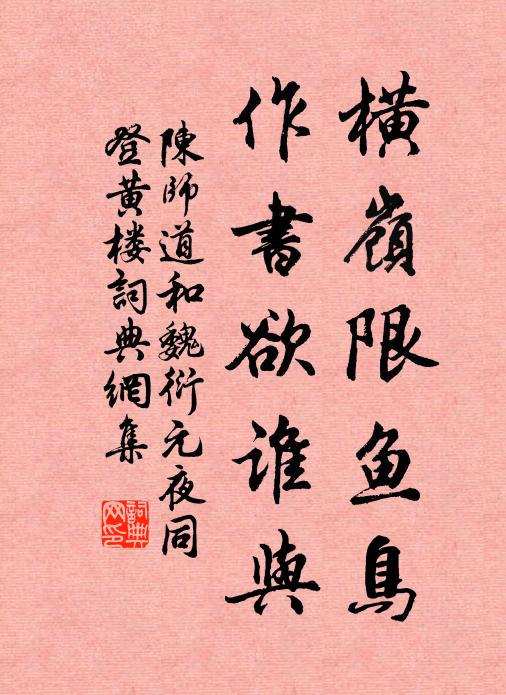 橫嶺限魚鳥
作書欲誰與
陳師道和魏衍元夜同
登黄楼詞典網集
詞典網印